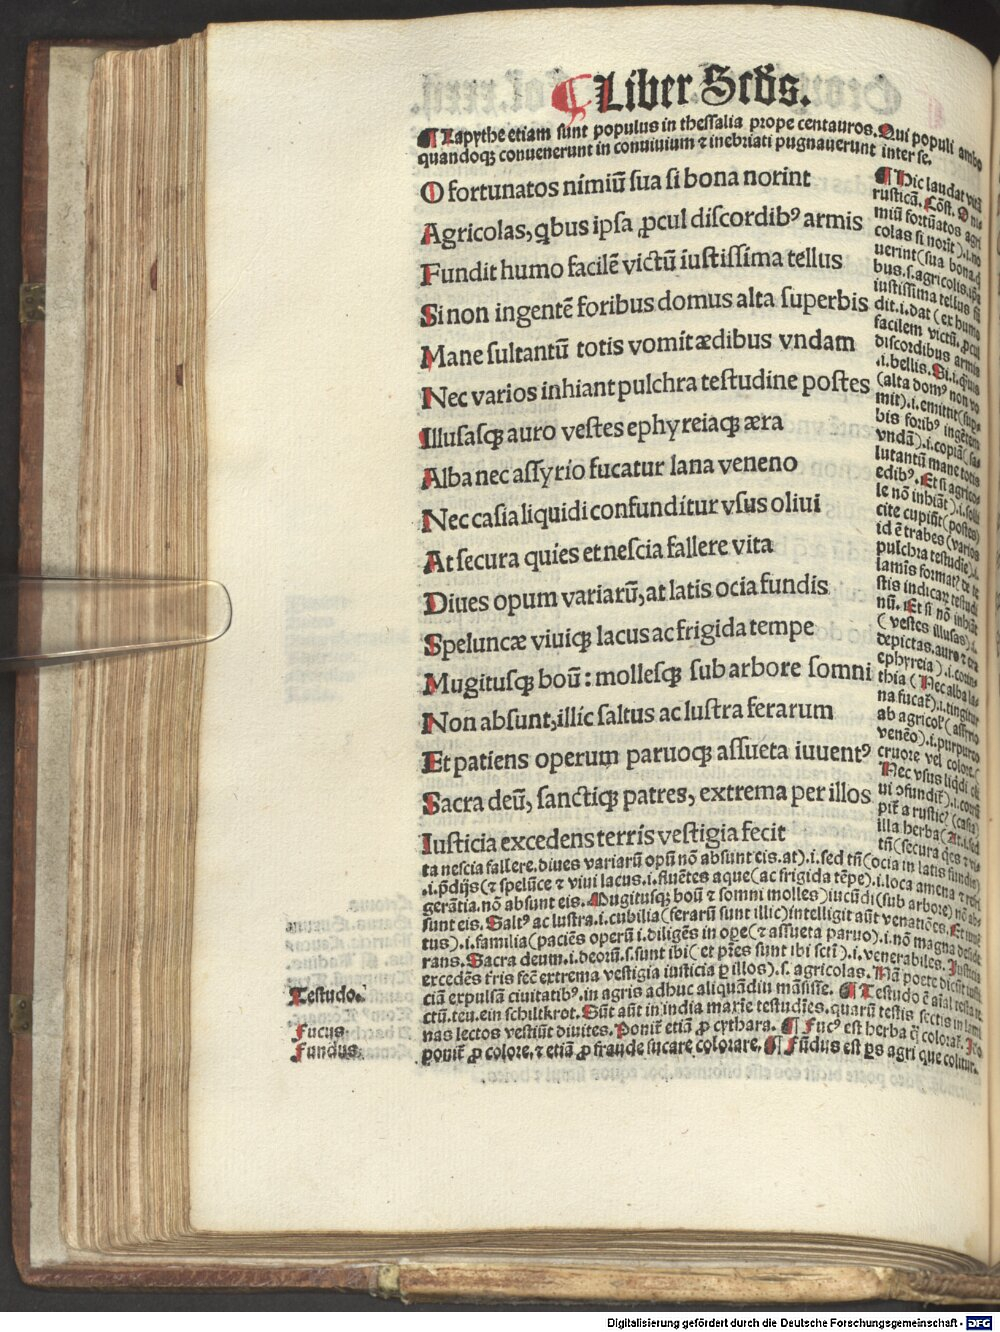 ¶ Liber Scd̕s.
¶ Lapythe etiam sunt populus in thessalia prope centauros. Qui populi ambo
quandoqꝫ conuenerunt in conuiuium ⁊ inebriati pugnauerunt inter se.
O fortunatos nimiū sua si bona norint
Agricolas, qbus ipsa ꝓcul discordibꝰ armis
Fundit humo facilē victū iustissima tellus
Si non ingentē foribus domus alta superbis
Mane sultantū totis vomit ædibus vndam
Nec varios inhiant pulchra testudine postes
Illusasqꝫ auro vestes ephyreiaqꝫ æra
Alba nec assyrio fucatur lana veneno
Nec casia liquidi confunditur vsus oliui
At secura quies et nescia fallere vita
Diues opum variarū, at latis ocia fundis
Speluncæ viuiqꝫ lacus ac frigida tempe
Mugitusqꝫ boū: mollesqꝫ sub arbore somni
Non absunt, illic saltus ac lustra ferarum
Et patiens operum paruoqꝫ assueta iuuentꝰ
Sacra deū, sanctiqꝫ patres, extrema per illos
Iusticia excedens terris vestigia fecit
¶ Hic laudat vitā
rusticā. Cōst. O ni-
miū fortūatos agri
colas si norīt).i.no
uerint (sua bona. q
bus.s.agricolis. ip̄a
iustissima tellus fū
dit.i.dat (ex humo
facilem victū. ꝓcul
discordibus armis
.i.bellis. Si.i.q̄uis
(alta domꝰ non vo
mit).i.emittit (sup̱
bis foribꝰ ingētem
vndā).i.copiā (sa-
lutantū mane totis
edibꝰ. Et si agrico
le nō inhiāt).i.solli
cite cupiūt (postes)
id ē trabes (varios
pulchra testudīe).i.
lamīs format? de te
stis indicaꝝ testudi
nū. Et si nō inhiāt
(vestes illusas).i.
depictas. auro ⁊ era
ephyreia).i.corin-
thia (Nec alba la-
na fucat̄).i.tingitur
ab agricol' (assyrio
venēo).i.purpureo
cruore vel colore. (
Nec vsus liq̄di oli
ui ↄfundit̄).i.corrū
pit̄ a rustic? (casia)
illa herba (At.i.sed
tn̄ (secura q̄es ⁊ vi-
ta nescia fallere. diues variarū opū nō absunt eis. at).i.sed tn̄ (ocia in latis fundis)
.i.p̄dijs (⁊ spelūce ⁊ viui lacus.i.fluētes aque (ac frigida tēpe).i.loca amena ⁊ refri
gerātia. nō absunt eis. Mugitusqꝫ boū ⁊ somni molles) iucūdi (sub arbore) nō ab-
sunt eis. Saltꝰ ac lustra.i.cubilia (ferarū sunt illic) intelligit aūt venatiōes. Et iuuē
tus).i.familia (paciēs operū.i.diligēs in oꝑe (⁊ assueta paruo).i.nō magna deside
rans. Sacra deum.i.deorū.s.sunt ibi (et pr̄es sunt ibi sctī).i.venerabiles. Iusticia
excedēs tr̄is fec̄ extrema vestigia iusticia ꝑ illos).s.agricolas. Nā poete dicūt iusti-
ciā expulsā ciuitatibꝰ. in agris adhuc aliquādiu māsisse. ¶ Testudo ē aīal testa te
ctū. teu. ein schiltkrot. Sūt aūt in india marīe testudīes. quarū testis sectis in lami
nas lectos vestiūt diuites. Ponit̄ etiā ꝓ cythara. ¶ Fucꝰ est herba q̄ colorat̄. Itē
ponit̄ ꝓ colore. ⁊ etiā ꝓ fraude fucare colorare. ¶ Fūdus est ps agri que colitur.
Testudo.
Fucus.
Fundus.
Digitalisierung gefördert durch die Deutsche Forschungsgemeinschaft - DFG